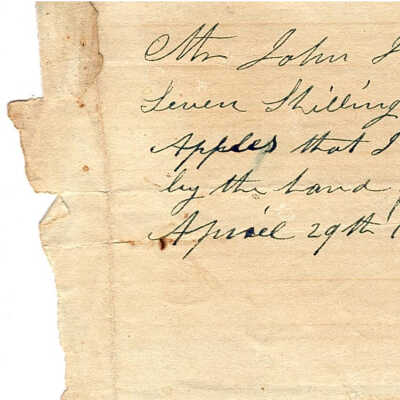 Mr John
Seven Shilling
Apples that I
by the hand
April 29th